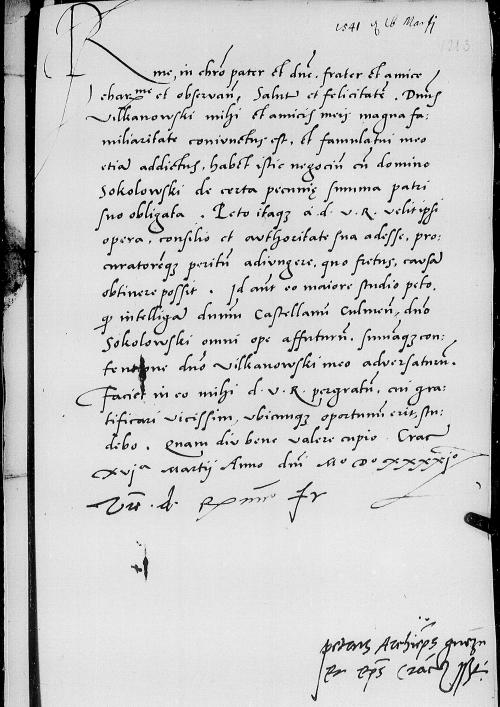 1541 16 Martij
1213
Rme, in chro pater et dne, frater et amice
charme et observan, Salut et felicitate. Dnus
Vilkanowski mihi et amicis meis magna fa-
miliaritate coniunctus est, et famulatui meo
etia addictus, habet istic negociu cu domino
Sokolowski de certa pecunię summa patri
suo obligata. Peto itaqz a d. v. R. velit ipsi
opera, consilio et authoritate sua adesse, pro-
curatoreqz peritu adiungere, quo fretus, causa
obtinere possit. Id aut eo maiore studio peto,
qz intelliga dnum Castellanu Culmen, dno
Sokolowski omni ope affuturu, summaqz con-
tentione dno Vilkanowski meo adversaturu.
Faciet in eo mihi d. v. R. pergratu, cui gra-
tificari vicissim, ubicunqz oportunu erit, stu-
debo. Quam diu bene valere cupio. Crac
xvja Martij Anno dni Mo Do xxxxjo
Vre. d. Rme fr
petrus Archieps gnezn
et eps Crac sst.